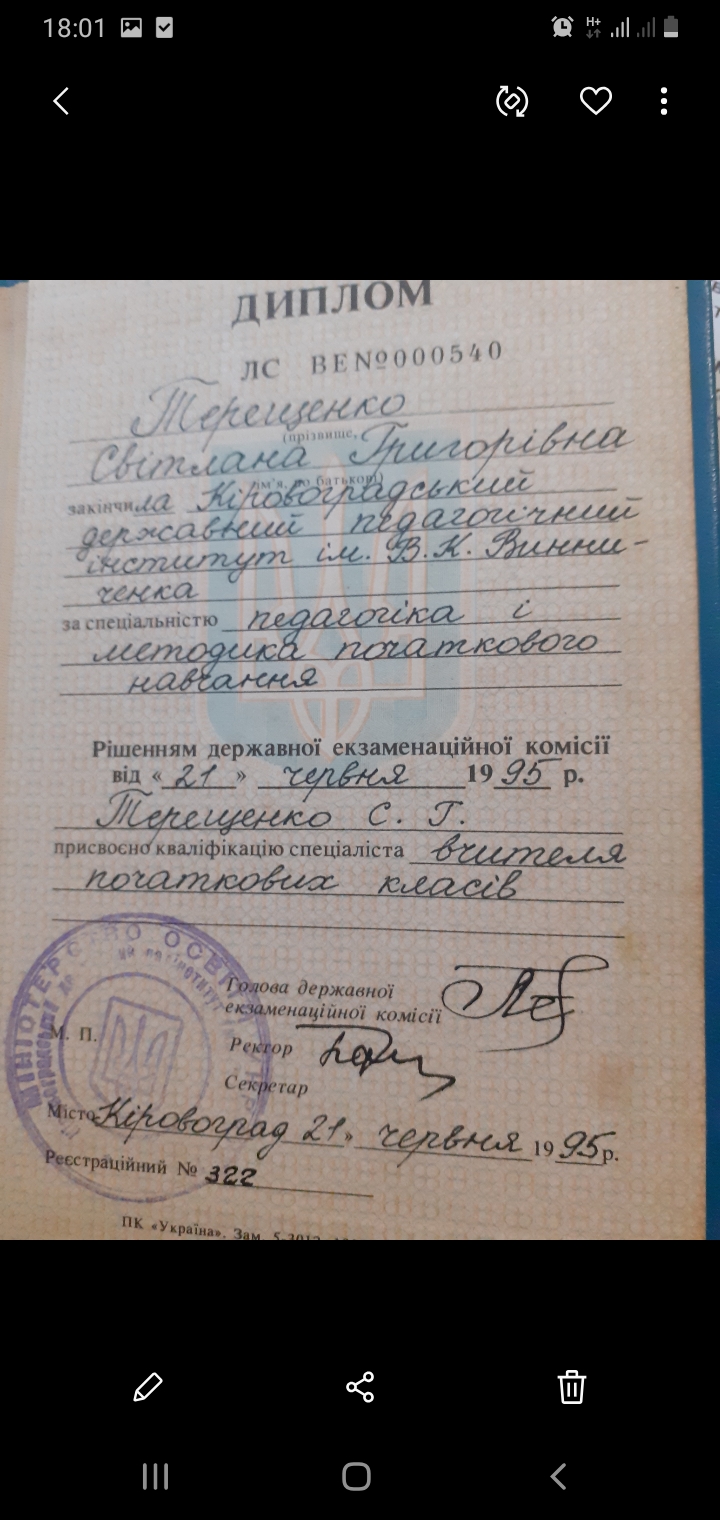 18:01
H+
ДИПЛОМ
ЛС ВЕ№000540
Терещенко
(прізвище,
Світлана Григорівна
ім'я, по батькові)
закінчила Кіровоградський
державний педагогічний
інститут ім. В.К. Винни-
ченка
за спеціальністю педагогіка і
методика початкового
навчання
Рішенням державної екзаменаційної комісії
від «21» червня 1995 р.
Терещенко С. Г.
присвоєно кваліфікацію спеціаліста вчителя
початкових класів
МІНІСТЕРСТВО ОСВІТИ
Голова державної
екзаменаційної комісії
М. П.
Ректор
Секретар
Місто Кіровоград 21» червня 1995р.
Реєстраційний № 322
ПК «Україна». Зам. 5-3012